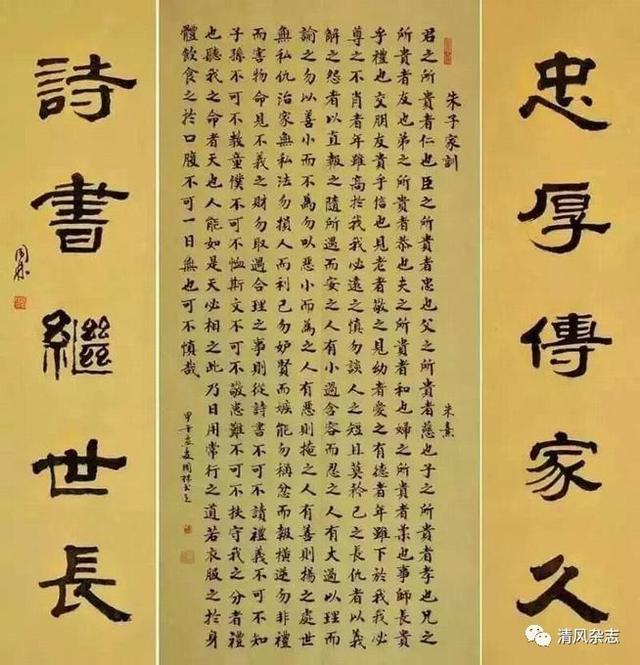 忠厚傳家久
朱子家訓 朱熹
君之所貴者仁也臣之所貴者忠也父之所貴者慈也子之所貴者孝也兄之
所貴者友也弟之所貴者恭也夫之所貴者和也婦之所貴者柔也事師長貴
乎禮也交朋友貴乎信也見老者敬之見幼者愛之有德者年雖下於我我必
尊之不肖者年雖高於我我必遠之慎勿談人之短且莫矜己之長仇者以義
解之怨者以直報之隨所遇而安之人有小過含容而忍之人有大過以理而
諭之勿以善小而不為勿以惡小而為之人有惡則掩之人有善則揚之處世
無私仇治家無私法勿損人而利己勿妒賢而嫉能勿稱忿而報橫逆勿非禮
而害物命見不義之財勿取遇合理之事則從詩書不可不讀禮義不可不知
子孫不可不教童僕不可不恤斯文不可不敬患難不可不扶守我之分者禮
也聽我之命者天也人能如是天必相之此乃日用常行之道若衣服之於身
體飲食之於口腹不可一日無也可不慎哉
詩書繼世長
清风杂志